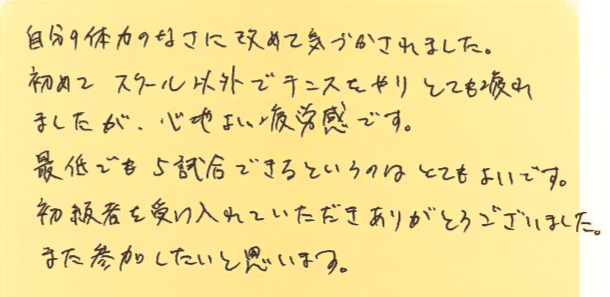 自分の体力のなさに改めて気づかされました。
初めて スクール以外でテニスをやり とても疲れ
ましたが、心地よい疲労感です。
最低でも 5試合できるというのは とてもよいです。
初級者を受け入れていただきありがとうございました。
また参加したいと思います。